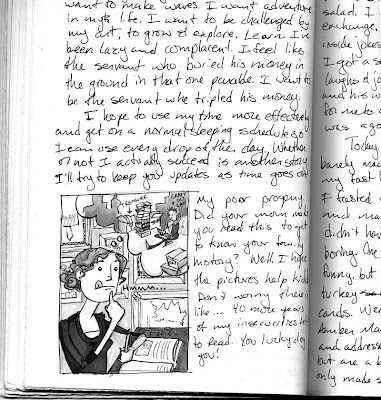 want to make waves. I want adventure
in my life. I want to be challenged by
my art, to grow & explore. Learn. I've
been lazy and complacent. I feel like
the servant who buried his money in
the ground in that one parable. I want to
be the servant who tripled his money.
I hope to use my time more effectively
and get on a normal sleeping schedule so
I can use every drop of the day. Whether
or not I actually succeed is another story
I'll try to keep you updates as time goes on
My poor progeny.
Did your mom make
you read this to get
to know your family
history? Well, I hope
the pictures help kids
Don't worry there's
like... 40 more years
of my insecurities
to read. You lucky dog
you!
Hmm...
salad. I
exchange.
inside jokes
I got a s
laughed jo
and his w
for me to a
was ago
Today
barely ma
my fast
I toasted
and ma
didn't hav
boring. One
funny, but
turkey
cards. We
Amber Ma
and addres
but are a b
only made s